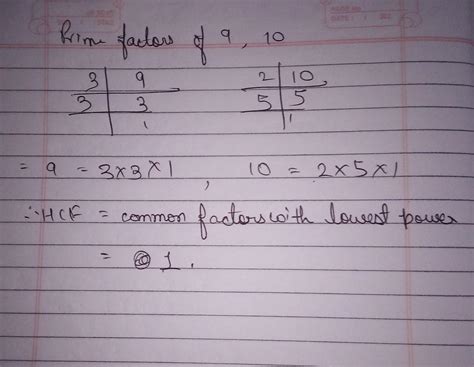 Prime factors of 9, 10
3 | 9 2 | 10
3 | 3 5 | 5
1 1
= 9 = 3×3×1 , 10 = 2×5×1
∴ HCF = common factors with lowest power
= 1.